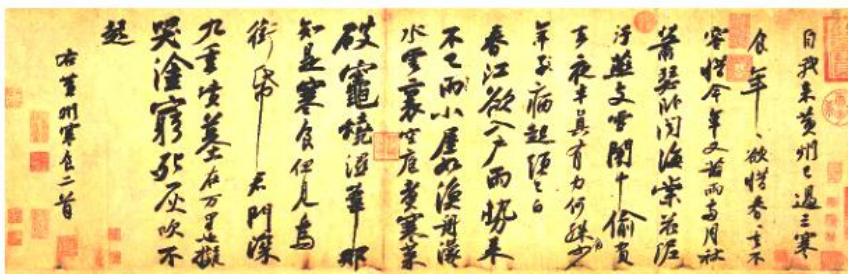 自我來黃州已過三寒
食年、欲惜春、去不
容惜今年又苦雨兩月秋
蕭瑟卧聞海棠花泥
汙燕支雪闇中偷負
去夜半真有力何殊少
年子病起須已白
春江欲入戶雨勢來
不已雨小屋如漁舟濛
水雲裏空庖煮寒菜
破竈燒濕葦那
知是寒食但見烏
銜帋君門深
九重墳墓在万里也擬
哭塗窮死灰吹不
起
右黃州寒食二首